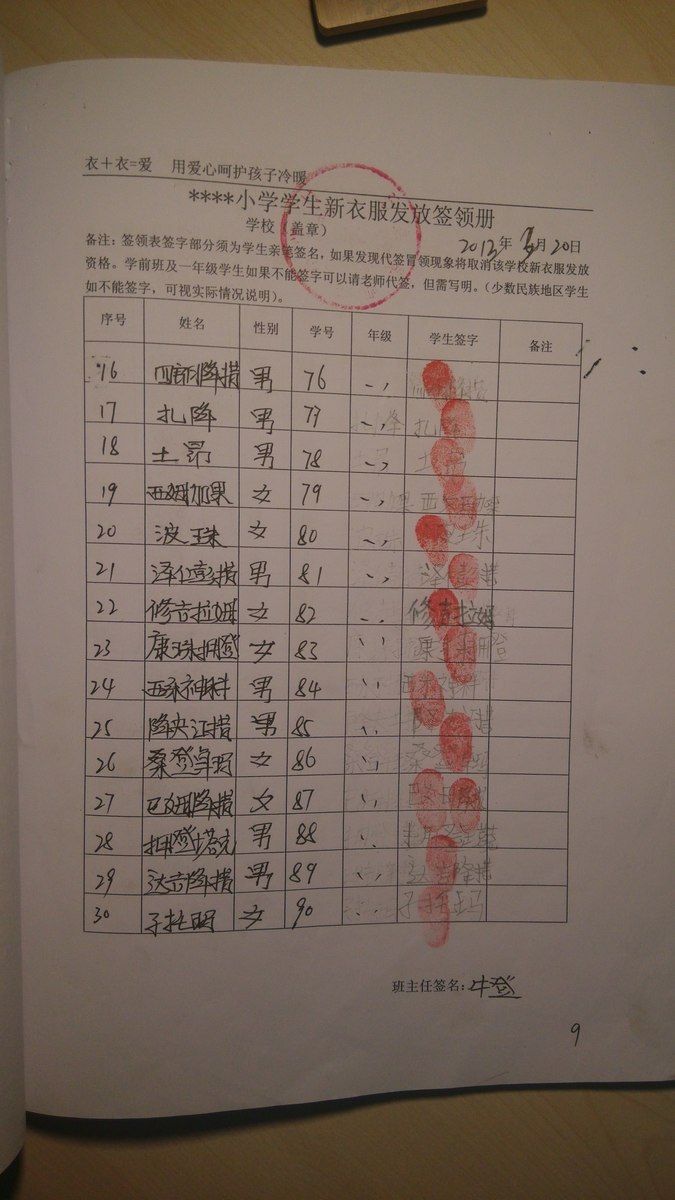 衣+衣=爱 用爱心呵护孩子冷暖
****小学学生新衣服发放签领册
学校（盖章） 2013年 月20日
备注：签领表签字部分须为学生亲笔签名，如果发现代签冒领现象将取消该学校新衣服发放
资格。学前班及一年级学生如果不能签字可以请老师代签，但需写明。（少数民族地区学生
如不能签字，可视实际情况说明）。
序号 姓名 性别 学号 年级 学生签字 备注
16 降措 男 76 〃
17 扎降 男 77 〃 扎降
18 土昂 男 78 〃 土昂
19 西姆加果 女 79 〃
20 波珠 女 80 〃
21 泽仁彭措 男 81 〃
22 修吉拉姆 女 82 〃 修吉拉姆
23 康珠拥登 女 83 〃
24 西乃神科 男 84 〃
25 降央江措 男 85 〃
26 桑登卓玛 女 86 〃
27 巴姆降措 女 87 〃
28 拥登塔克 男 88 〃
29 达吉降措 男 89 〃
30 子托玛 女 90 〃
班主任签名：牛登
9